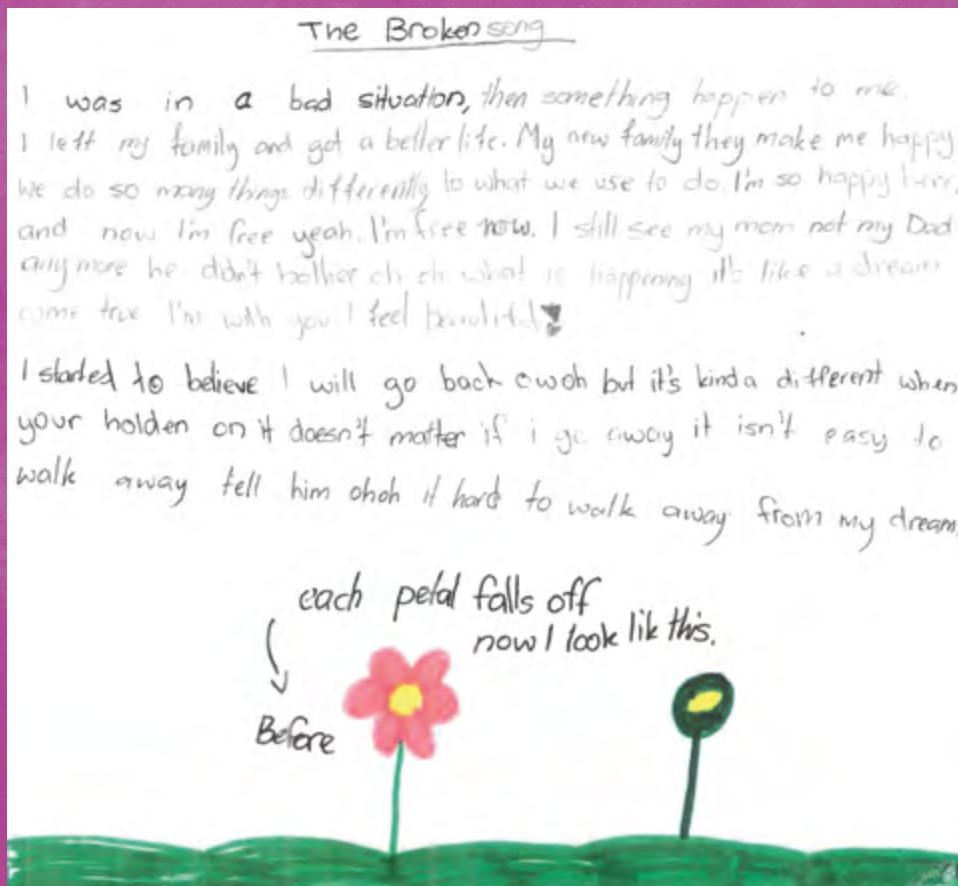 The Broken song
I was in a bad situation, then something happen to me.
I left my family and got a better life. My new family they make me happy
We do so many things differently to what we use to do. I'm so happy here,
and now I'm free yeah. I'm free now. I still see my mom not my Dad
any more he didn't bother oh oh what is happening it's like a dream
come true I'm with you I feel beautiful!
I started to believe I will go back owoh but it's kinda different when
your holden on it doesn't matter if i go away it isn't easy to
walk away tell him ohoh it hard to walk away from my dream.
each petal falls off
now I look like this.
Before